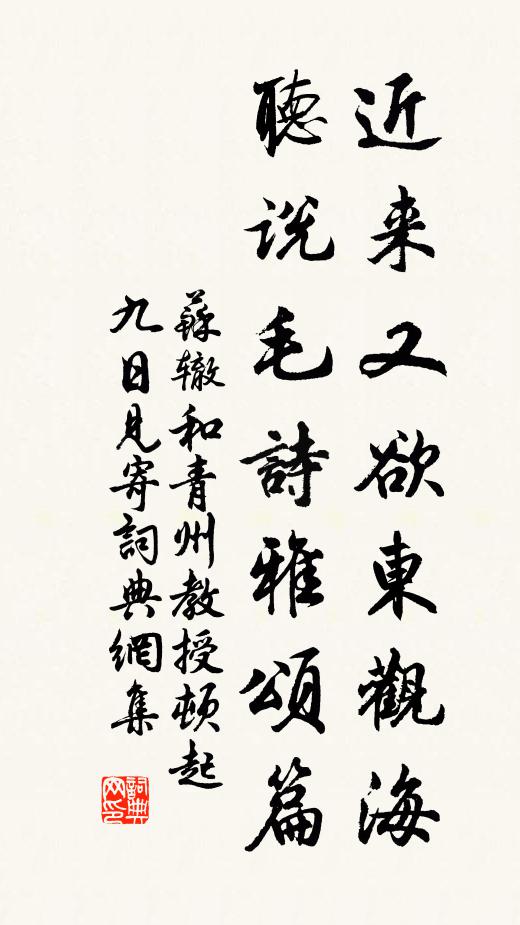 近来又欲東觀海
聽说毛詩雅頌篇
蘇辙和青州教授頓起
九日見寄詞典網集
詞典网印